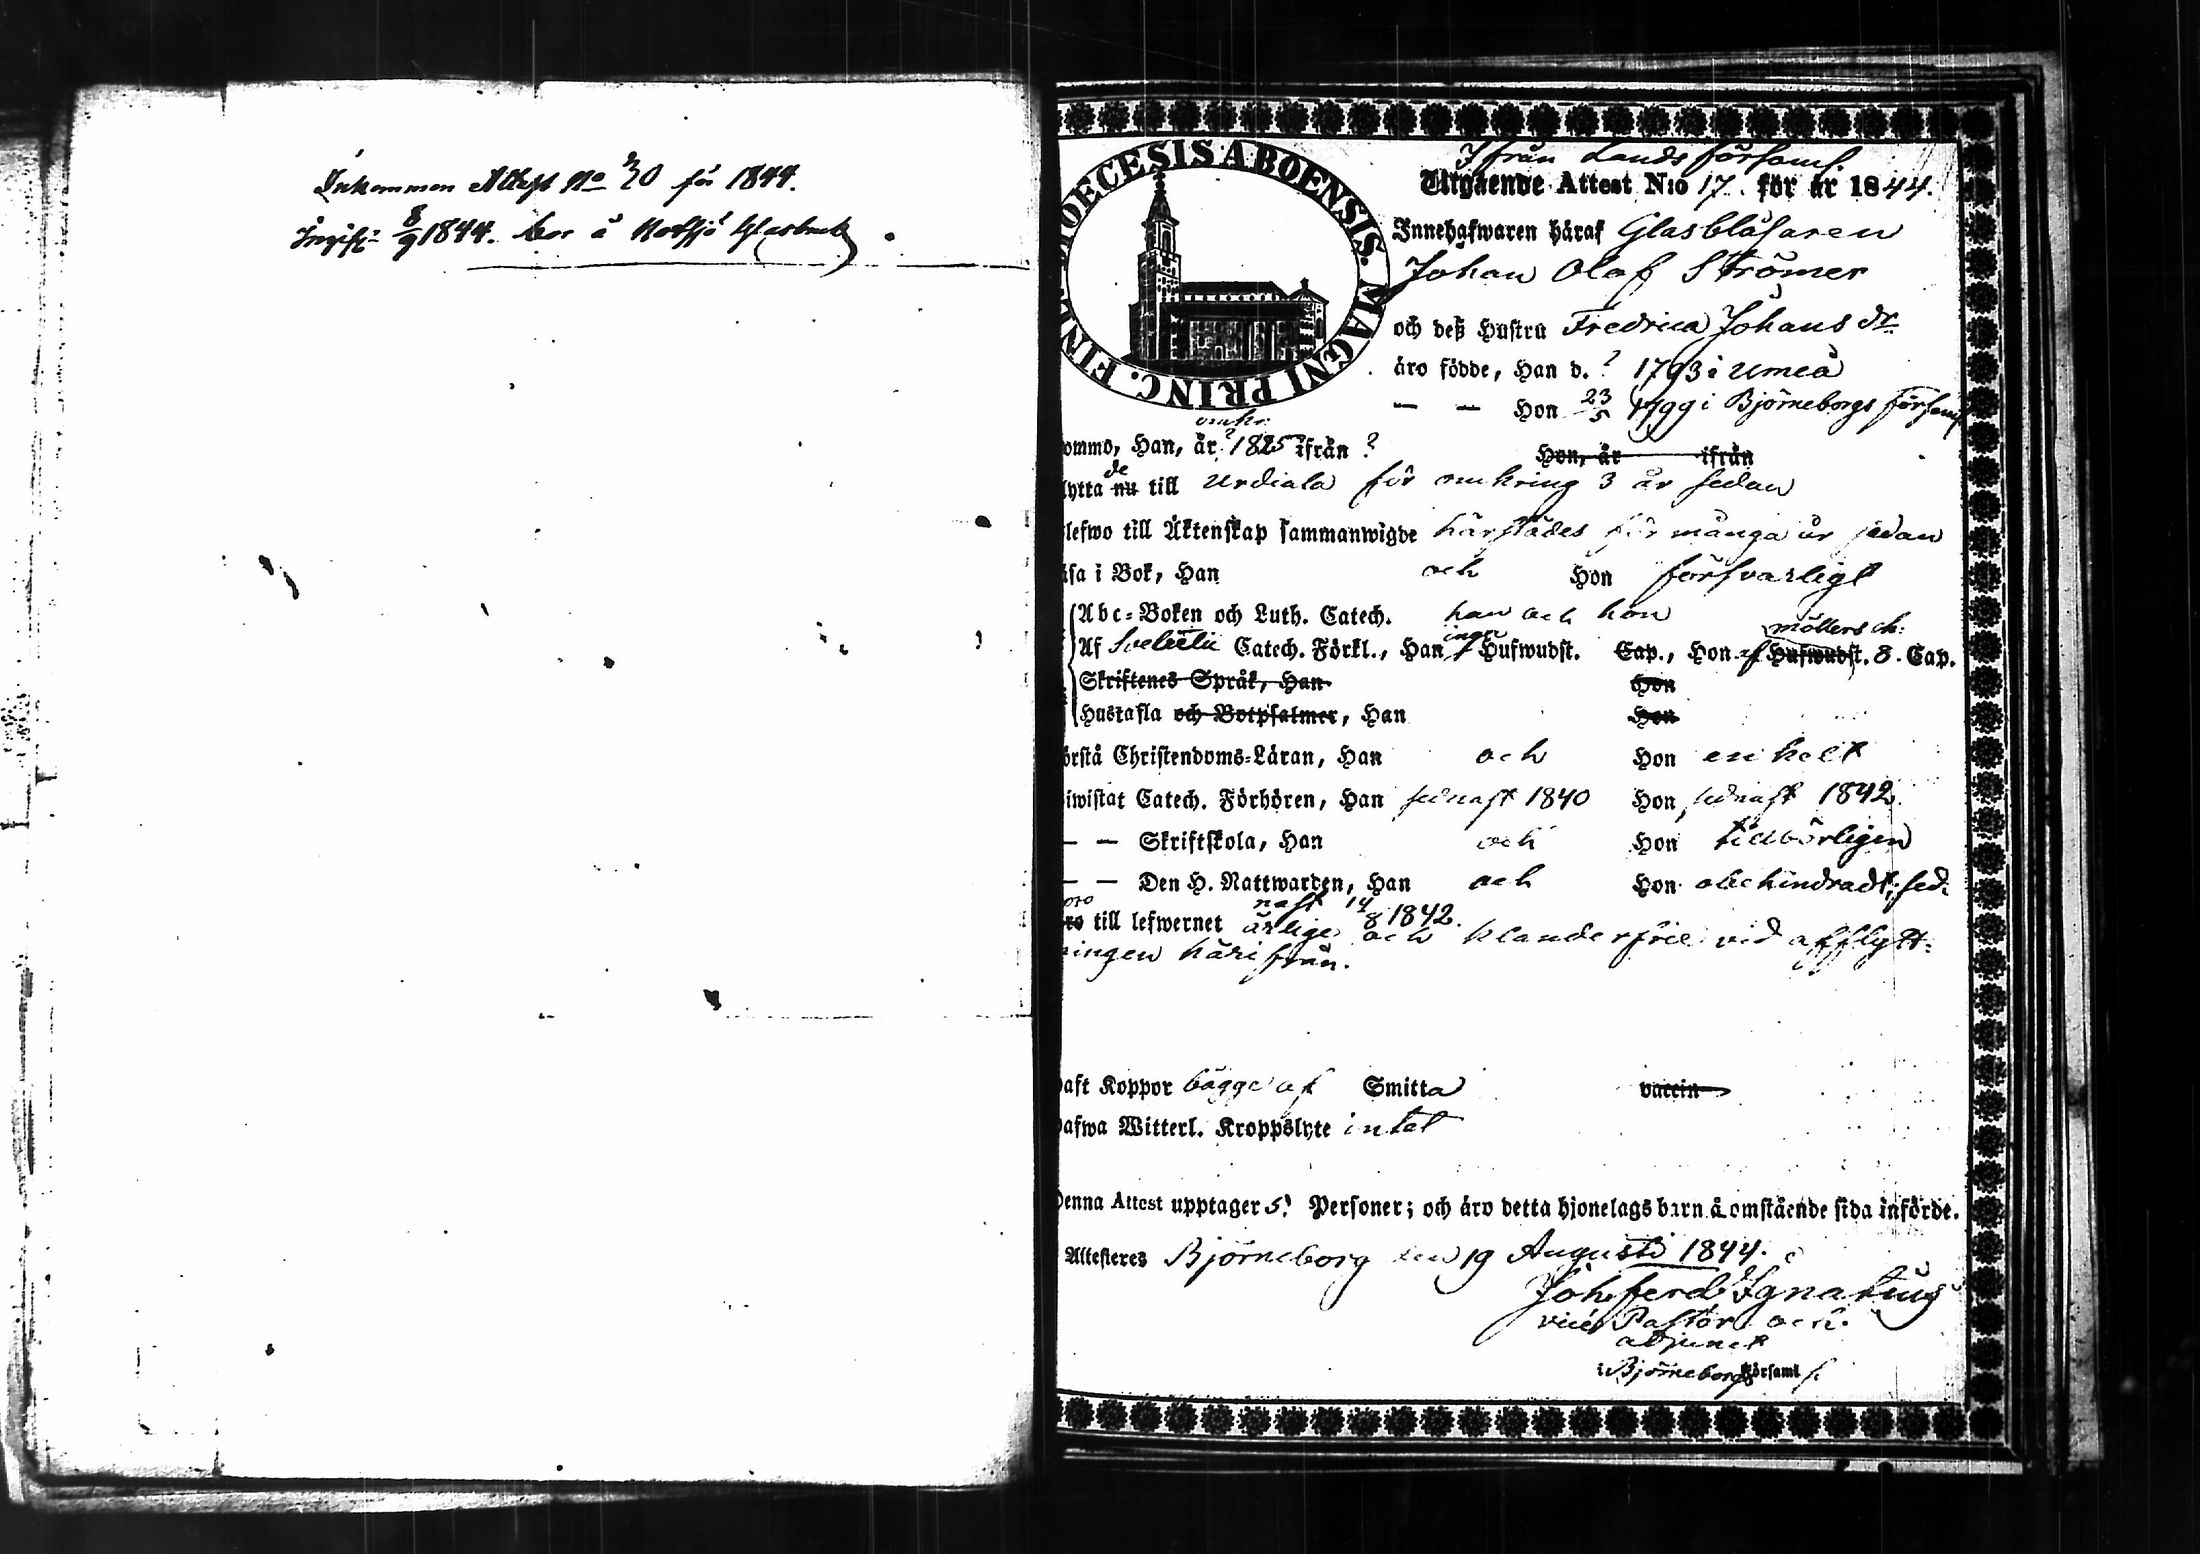 Inkommen Attest No 30 för 1844.
Ingift 8/9 1844. bor å Notsjö Glasbruk
DIOECESIS ABOENSIS. MAGNI PRINC. FINL.
Ifrån Landsförsaml.
Utgående Attest N:o 17. för år 1844.
Innehafwaren häraf Glasblåsaren
Johan Olof Strömer
och deß Hustru Fredrica Johansdr
äro födde, Han d. ? 1793 i Umeå
— — Hon 23/5 1799 i Björneborgs församl
omkr.
ommo, Han, år ? 1825 ifrån ? Hon, år ifrån
de
lytta nu till Urdiala för omkring 3 år sedan
lefwo till Äktenskap sammanwigde härstädes för många år sedan
äsa i Bok, Han och Hon försvarligt
Abc-Boken och Luth. Catech. han och hon
ingen möllers ch:
Af Svebelii Catech. Förkl., Han Hufwudst. Cap., Hon af Hufwudst. 8. Cap.
Skriftenes Språk, Han Hon
Hustafla och Botpsalmer, Han Hon
örstå Christendoms-Läran, Han och Hon enkelt
iwistat Catech. Förhören, Han sednast 1840 Hon sednast 1842.
— — Skriftskola, Han och Hon tillbörligen
— — Den H. Nattwarden, Han och Hon obehindradt; sed-
nast 14/8 1842.
äro till lefwernet ärlige och klanderfrie vid afflytt-
ningen härifrån.
aft Koppor bägge af Smitta vaccin
afwa Witterl. Kroppslyte intet
Denna Attest upptager 5. Personer; och äro detta hjonelags barn å omstående sida införde.
Attesteres Björneborg den 19 Augusti 1844.
Joh. Ferd. Ignatius
vice Pastor och
adjunct
i Björneborgs Församl.